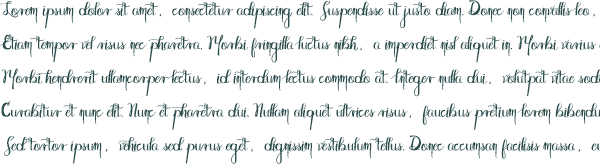 Lorem ipsum dolor sit amet, consectetur adipiscing elit. Suspendisse ut justo diam. Donec non convallis leo.
Etiam tempor vel risus nec pharetra. Morbi fringilla luctus nibh, a imperdiet nisl aliquet in. Morbi varius a
Morbi hendrerit ullamcorper lectus, id interdum lectus commodo at. Integer nulla dui, volutpat vitae sod
Curabitur et nunc elit. Nunc et pharetra dui. Nullam aliquet ultrices risus, faucibus pretium lorem bibendu
Sed tortor ipsum, vehicula sed purus eget, dignissim vestibulum tellus. Donec accumsan facilisis massa,